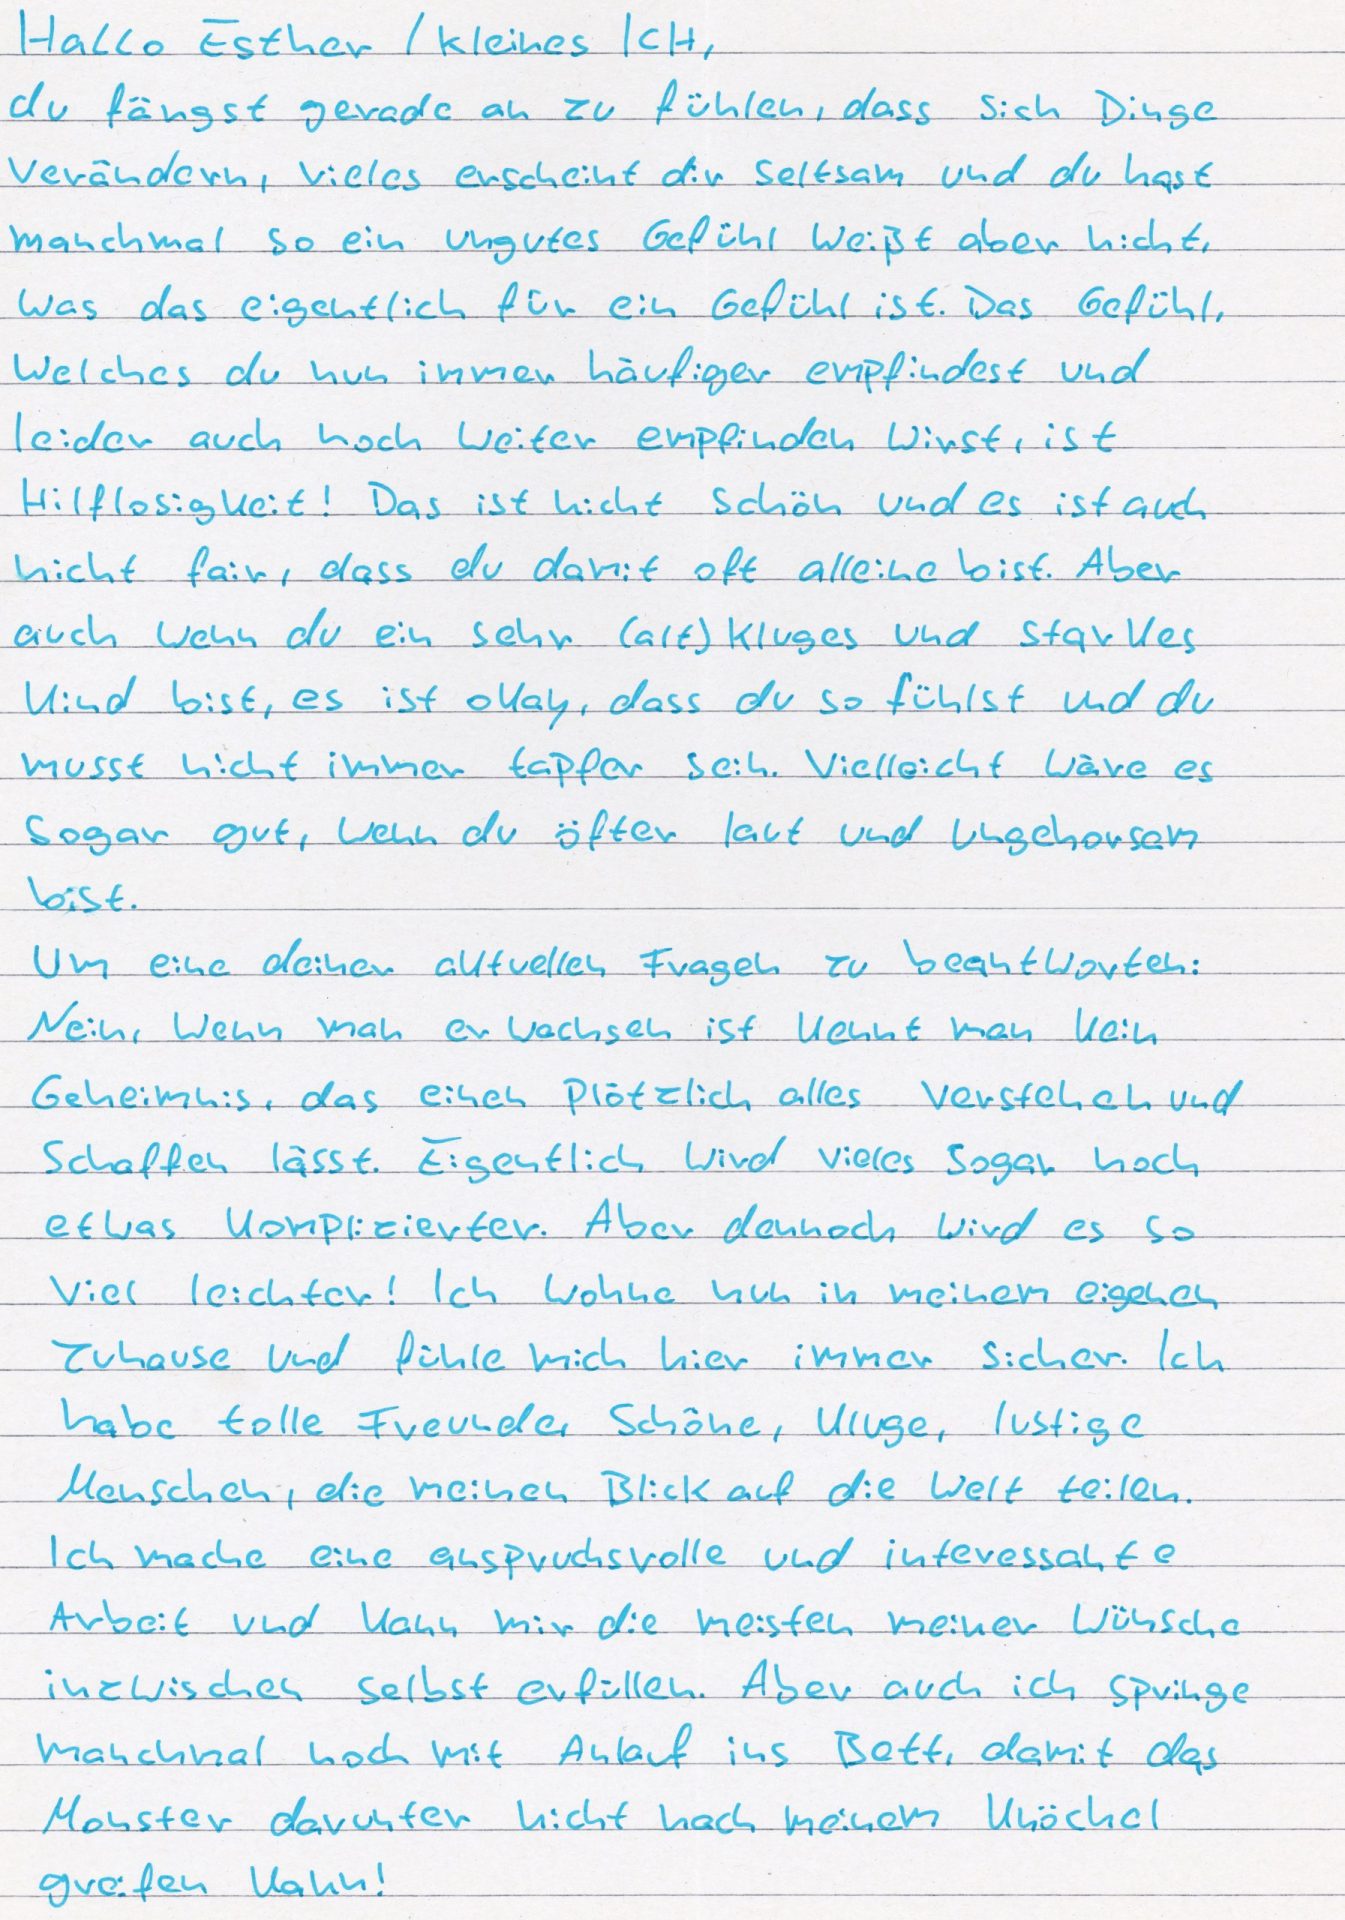 Hallo Esther / kleines ICH,
du fängst gerade an zu fühlen, dass sich Dinge
verändern, vieles erscheint dir seltsam und du hast
manchmal so ein ungutes Gefühl weißt aber nicht,
was das eigentlich für ein Gefühl ist. Das Gefühl,
welches du nun immer häufiger empfindest und
leider auch noch weiter empfinden wirst, ist
Hilflosigkeit! Das ist nicht schön und es ist auch
nicht fair, dass du damit oft alleine bist. Aber
auch wenn du ein sehr (alt)kluges und starkes
Kind bist, es ist okay, dass du so fühlst und du
musst nicht immer tapfer sein. Vielleicht wäre es
sogar gut, wenn du öfter laut und ungehorsam
bist.
Um eine deiner aktuellen Fragen zu beantworten:
Nein, wenn man erwachsen ist kennt man kein
Geheimnis, das einen plötzlich alles verstehen und
schaffen lässt. Eigentlich wird vieles sogar noch
etwas komplizierter. Aber dennoch wird es so
viel leichter! Ich wohne nun in meinem eigenen
Zuhause und fühle mich hier immer sicher. Ich
habe tolle Freunde, schöne, kluge, lustige
Menschen, die meinen Blick auf die Welt teilen.
Ich mache eine anspruchsvolle und interessante
Arbeit und kann mir die meisten meiner Wünsche
inzwischen selbst erfüllen. Aber auch ich springe
manchmal noch mit Anlauf ins Bett, damit das
Monster darunter nicht nach meinem Knöchel
greifen kann!